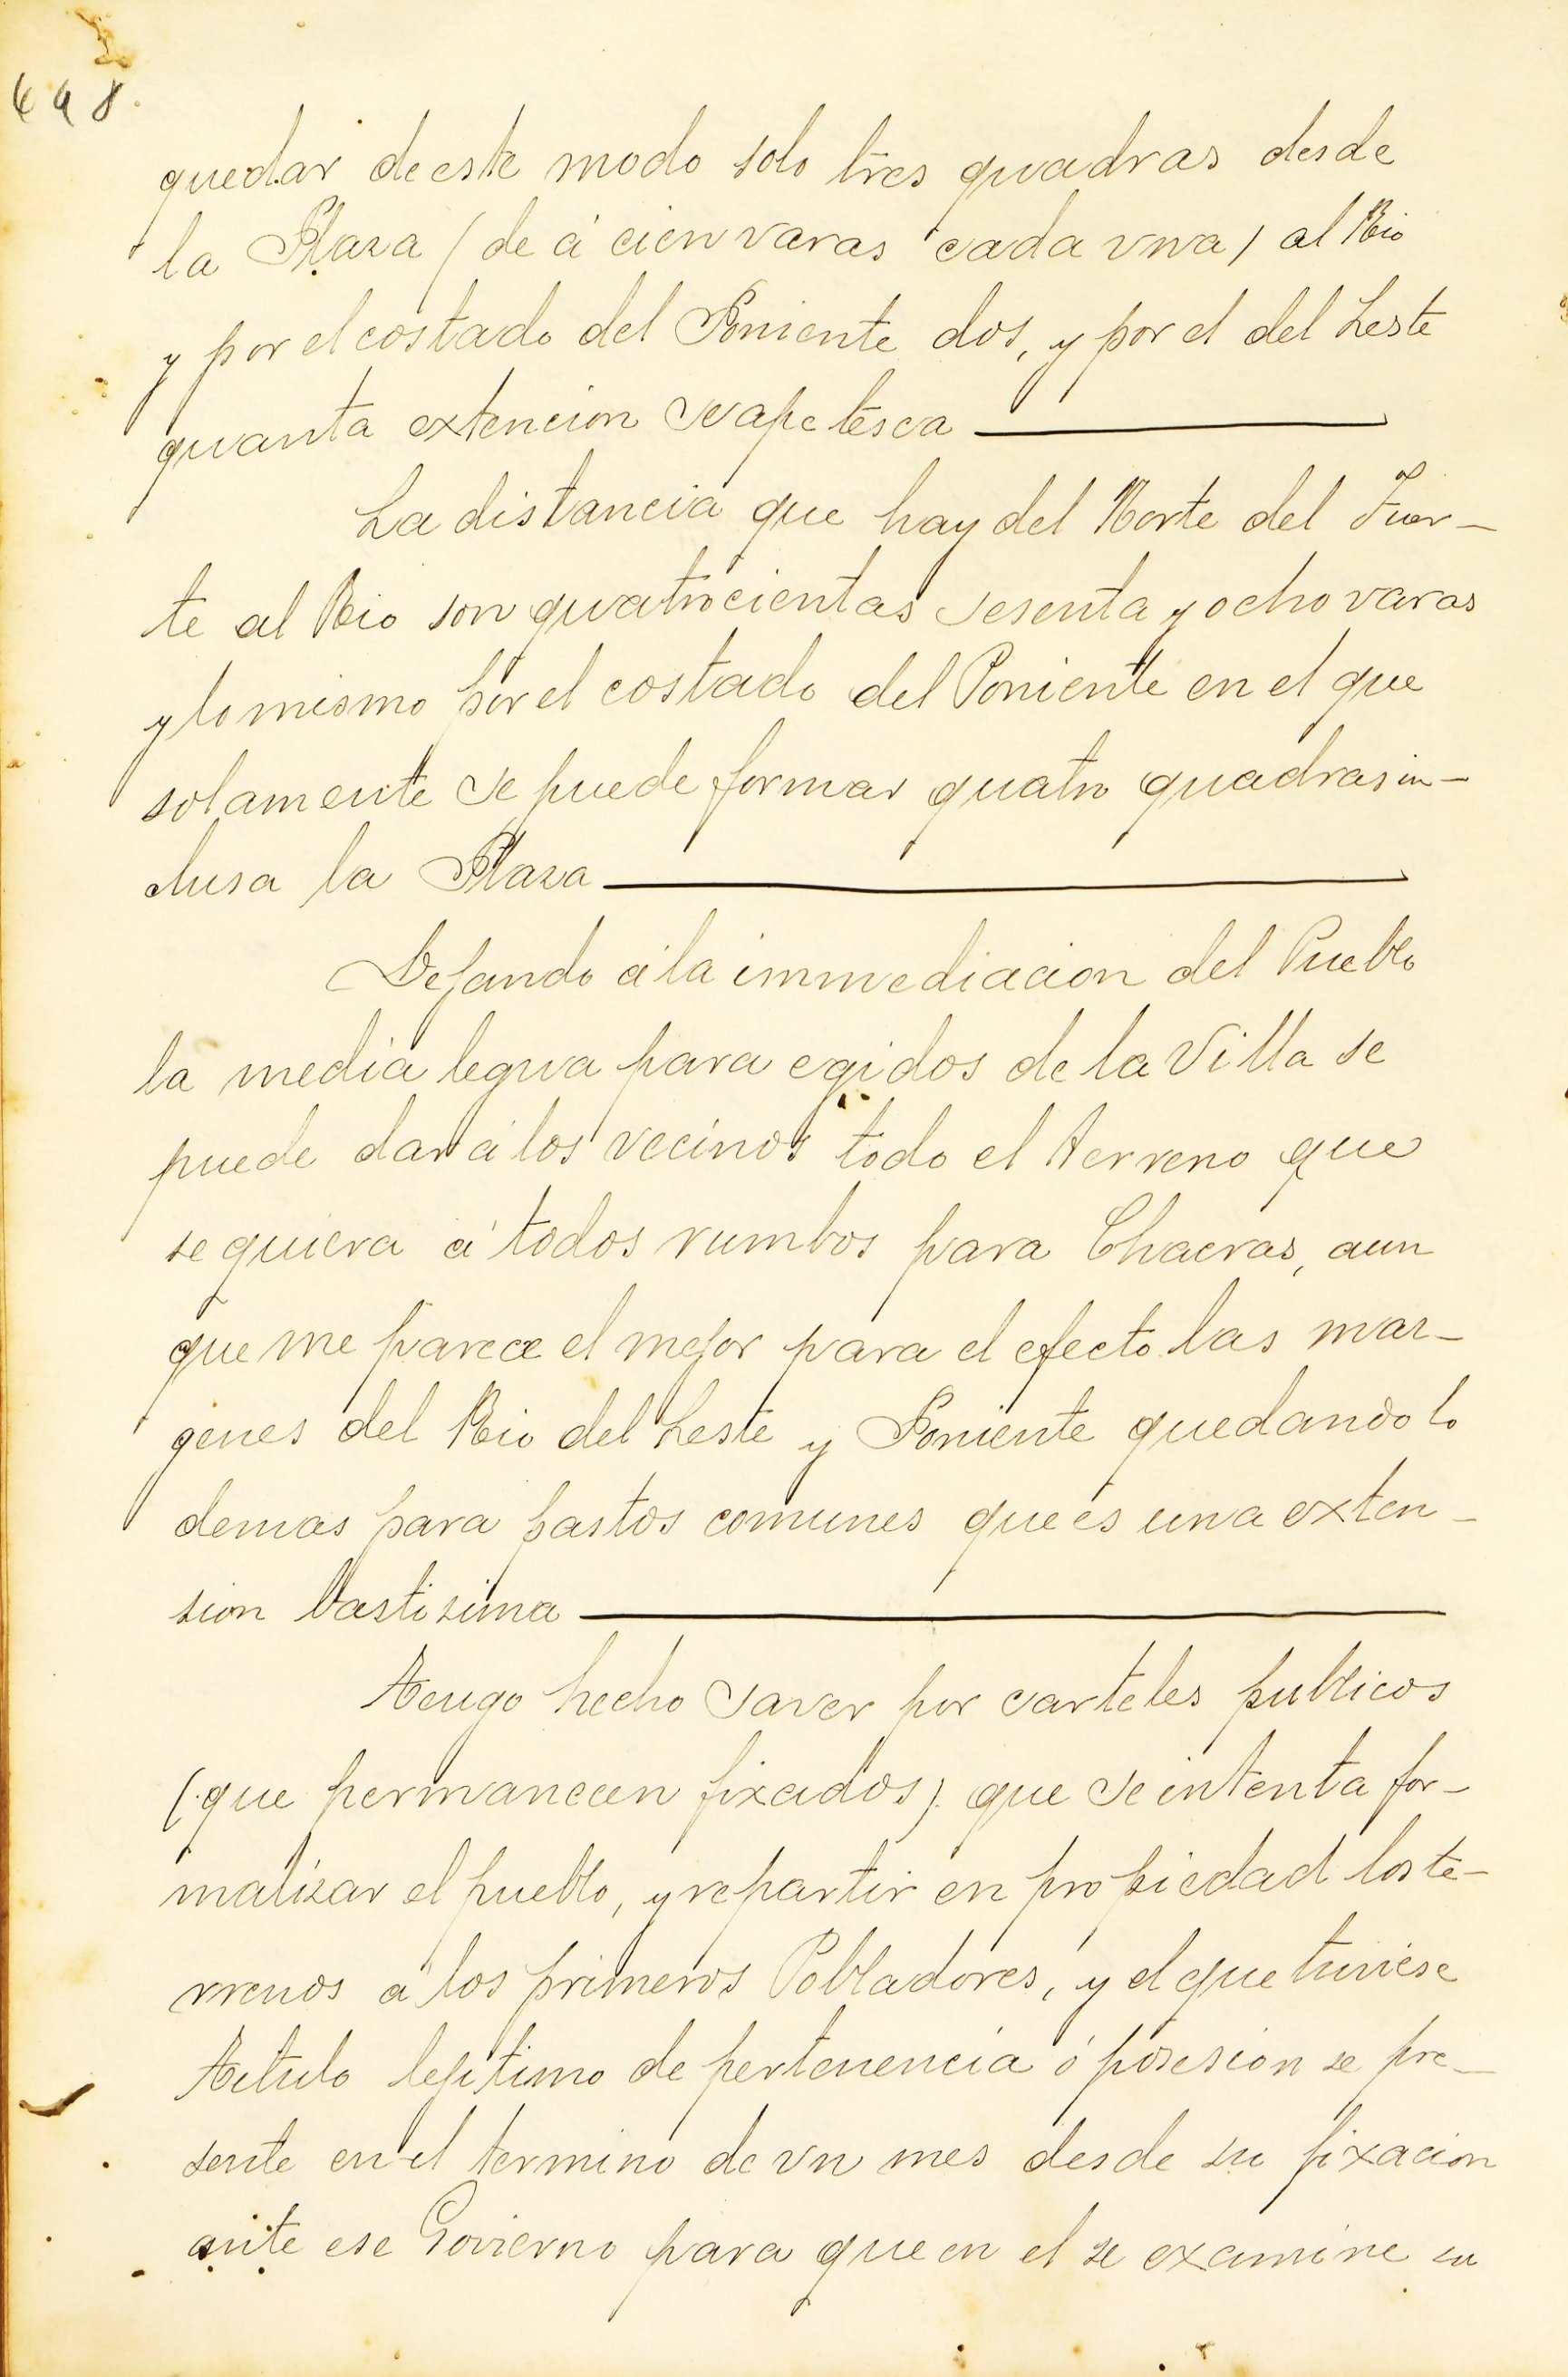 448.
quedar de este modo solo tres quadras desde
la Plaza (de á cien varas cada vna) al Rio
y por el costado del Poniente dos, y por el del Leste
quanta extencion se apetesca
La distancia que hay del Norte del Fuer-
te al Rio son quatrocientas sesenta y ocho varas
y lo mismo por el costado del Poniente en el que
solamente se puede formar quatro quadras in-
clusa la Plaza
Dejando á la immediacion del Pueblo
la media legua para egidos de la Villa se
puede dar á los vecinos todo el terreno que
se quiera á todos rumbos para Chacras, aun
que me parece el mejor para el efecto las mar-
genes del Rio del Leste y Poniente quedando lo
demas para pastos comunes que es una exten-
sion bastisima
Tengo hecho saver por carteles publicos
(que permanecen fixados) que se intenta for-
malizar el pueblo, y repartir en propiedad los te-
rrenos á los primeros Pobladores, y el que tuviese
titulo lejitimo de pertenencia ó posesion se pre-
sente en el termino de vn mes desde su fixacion
ante ese Govierno para que en el se examine su